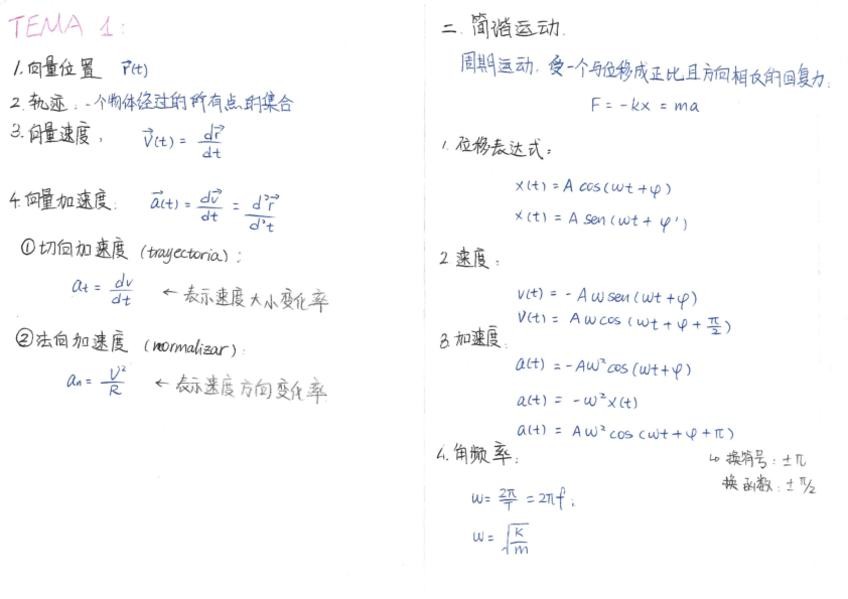 TEMA 1:
1.向量位置 r⃗(t)
2.轨迹:一个物体经过的所有点的集合
3.向量速度, v⃗(t) = dr⃗/dt
4.向量加速度: a⃗(t) = dv⃗/dt = d²r⃗/d²t
①切向加速度 (trayectoria):
at = dv/dt ←表示速度大小变化率
②法向加速度 (normalizar):
an = V²/R ←表示速度方向变化率
二.简谐运动.
周期运动.受一个与位移成正比且方向相反的回复力:
F = -kx = ma
1.位移表达式:
x(t) = A cos(ωt + φ)
x(t) = A sen(ωt + φ')
2.速度:
v(t) = -Aωsen(ωt+φ)
V(t) = Aωcos(ωt+φ+π/2)
3.加速度:
a(t) = -Aω²cos(ωt+φ)
a(t) = -ω²x(t)
a(t) = Aω²cos(ωt+φ+π)
↳ 换符号:±π
换函数:±π/2
4.角频率:
ω = 2π/T = 2πf;
ω = √(K/m)